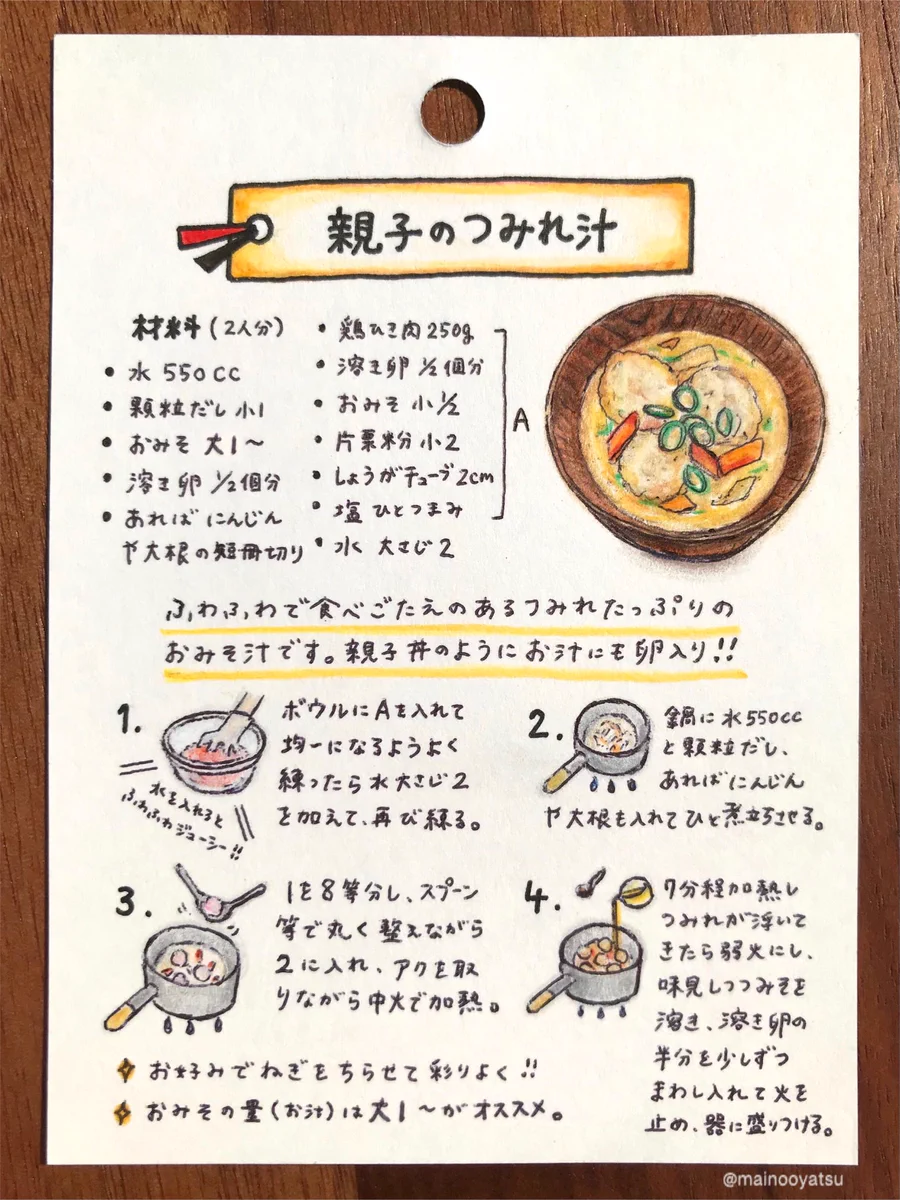 親子のつみれ汁
材料(2人分)
• 水 550cc
• 顆粒だし 小1
• おみそ 大1〜
• 溶き卵 ½個分
• あれば にんじん
や大根の短冊切り
• 鶏ひき肉 250g
• 溶き卵 ½個分
• おみそ 小½
• 片栗粉 小2
• しょうがチューブ 2cm
• 塩 ひとつまみ
A
• 水 大さじ2
ふわふわで食べごたえのあるつみれたっぷりの
おみそ汁です。親子丼のようにお汁にも卵入り!!
1.
ボウルにAを入れて
均一になるようよく
練ったら水大さじ2
を加えて、再び練る。
水を入れると
ふわふわジューシー!!
2.
鍋に水550cc
と顆粒だし、
あればにんじん
や大根も入れてひと煮立ちさせる。
3.
1を8等分し、スプーン
等で丸く整えながら
2に入れ、アクを取
りながら中火で加熱。
4.
7分程加熱し
つみれが浮いて
きたら弱火にし、
味見しつつみそを
溶き、溶き卵の
半分を少しずつ
まわし入れて火を
止め、器に盛りつける。
お好みでねぎをちらせて彩りよく!!
おみその量(お汁)は大1〜がオススメ。
@mainooyatsu